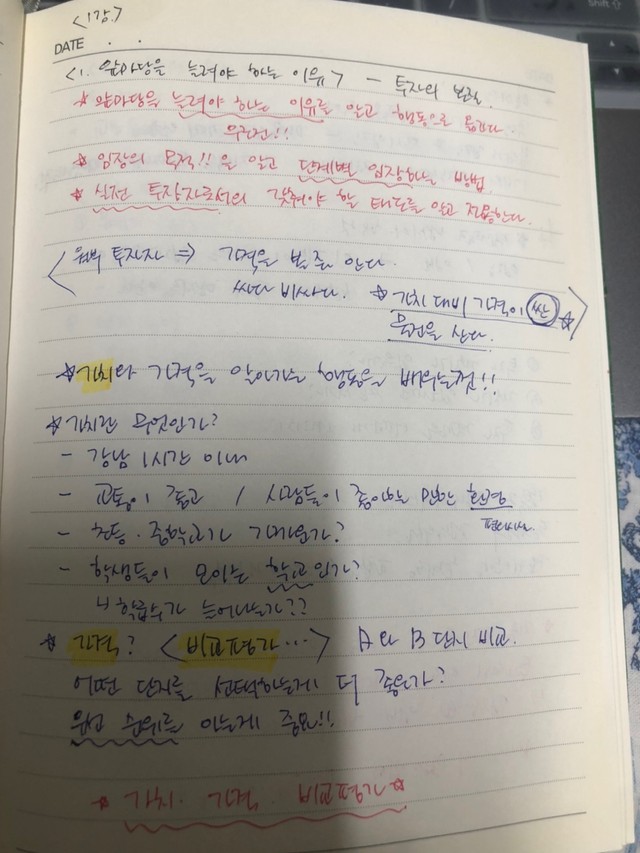 <1강.>
DATE . .
<1. 앞마당을 늘려야 하는 이유> - 투자의 본질.
☆ 앞마당을 늘려야 하는 이유를 알고 행동으로 옮긴다.
무조건!!
☆ 임장의 목적!!을 알고 단계별 임장하는 방법
☆ 실전 투자자로서의 갖춰야 할 태도를 알고 적용한다.
투자자 ⇒ 가격을 볼 줄 안다.
싸다 비싸다. ☆ 가치 대비 가격이 싼 ☆
물건을 산다.
☆ 가치와 가격을 알아가는 행동을 배우는것!!
☆ 가치란 무엇인가?
- 강남 1시간 이내
- 교통이 좋고 / 사람들이 좋아하는 환경
- 초등·중학교가 가까운가?
- 학생들이 모이는 학교인가?
↳ 학급수가 늘어나는가??
☆ 가격? <비교평가...> A와 B 단지 비교.
어떤 단지를 선택하는게 더 좋은가?
우선 순위를 아는게 중요!!
☆ 가치. 가격. 비교평가 ☆